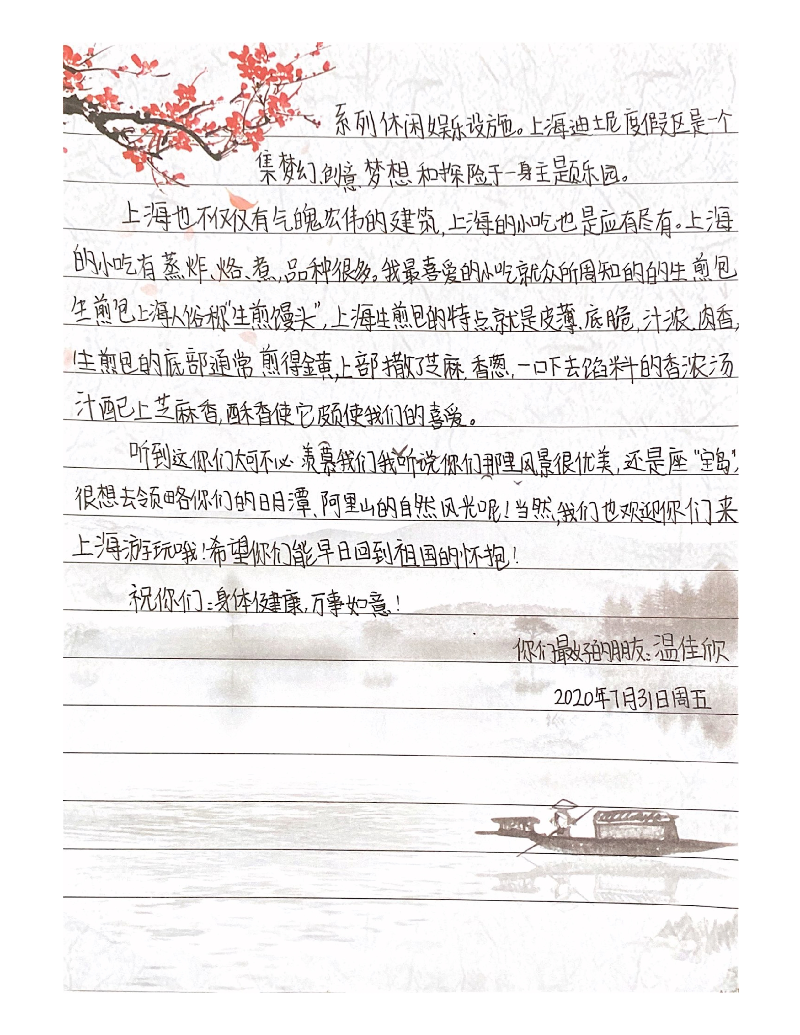 系列休闲娱乐设施。上海迪士尼度假区是一个
集梦幻、创意、梦想和探险于一身主题乐园。
上海也不仅仅有气魄宏伟的建筑,上海的小吃也是应有尽有。上海
的小吃有蒸、炸、烙、煮,品种很多。我最喜爱的小吃就众所周知的的生煎包
生煎包上海人俗称“生煎馒头”,上海生煎包的特点就是皮薄、底脆,汁浓、肉香,
生煎包的底部通常煎得金黄,上部撒了芝麻、香葱,一口下去馅料的香浓汤
汁配已上芝麻香,酥香使它颇使我们的喜爱。
听到这你们大可不必羡慕我们我听说你们那里风景很优美,还是座“宝岛”,
很想去领略你们的日月潭、阿里山的自然风光呢!当然,我们也欢迎你们来
上海游玩哦!希望你们能早日回到祖国的怀抱!
祝你们:身体健康,万事如意!
你们最好的朋友:温佳欣
2020年7月31日周五